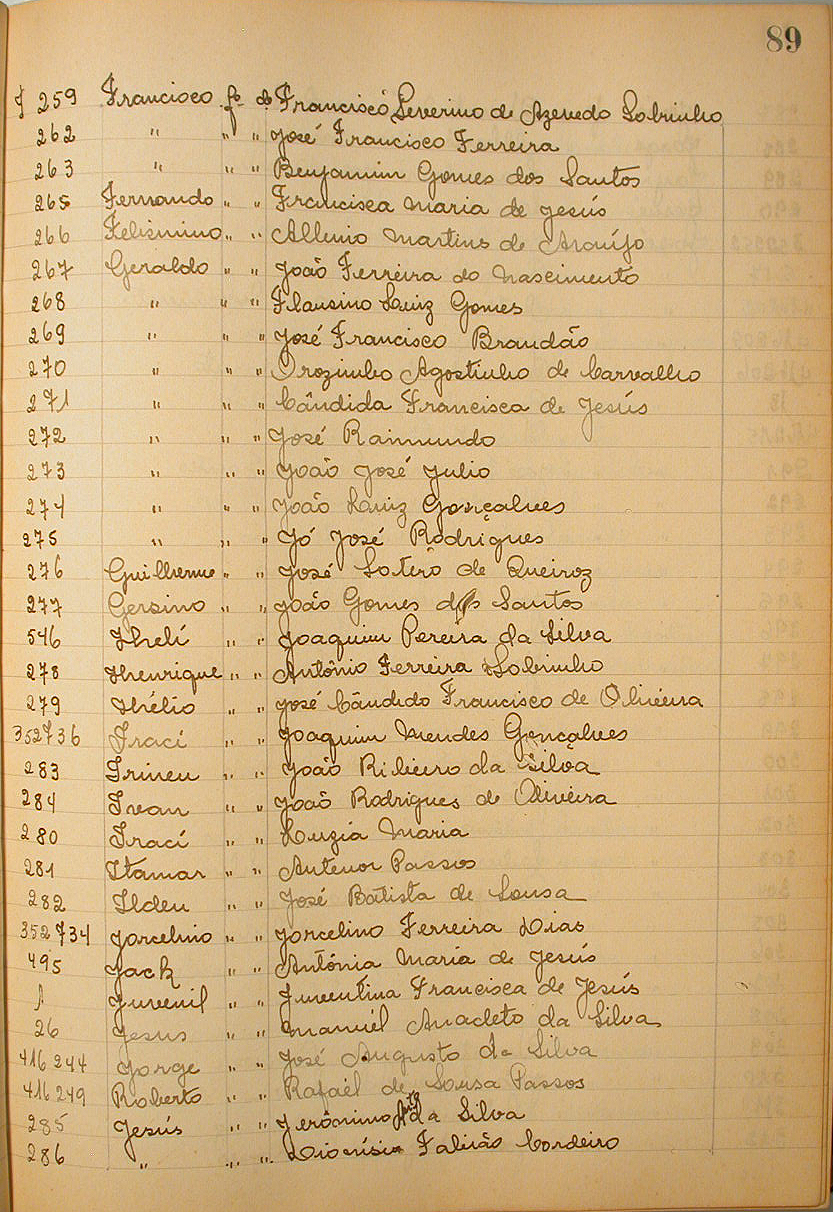 89
f 259 Francisco fº de Francisco Severino de Azevedo Sobrinho
262 " " " José Francisco Ferreira
263 " " " Benjamim Gomes dos Santos
265 Fernando " " Francisca Maria de Jesús
266 Felismino " " Martins de Araújo
267 Geraldo " " João Ferreira do Nascimento
268 " " " Flausino Luiz Gomes
269 " " " José Francisco Brandão
270 " " " Orozimbo Agostinho de Carvalho
271 " " " Cândida Francisca de Jesús
272 " " " José Raimundo
273 " " " João José Julio
274 " " " João Luiz Gonçalves
275 " " " Jó José Rodrigues
276 Guilherme " " José Lotero de Queiroz
277 Gersino " " João Gomes dos Santos
546 Heli " " Joaquim Pereira da Silva
278 Henrique " " Antônio Ferreira Sobrinho
279 Hélio " " José Cândido Francisco de Oliveira
352736 Iraci " " Joaquim Mendes Gonçalves
283 Irineu " " João Ribeiro da Silva
284 Ivan " " João Rodrigues de Oliveira
280 Iraci " " Luzia Maria
281 Itamar " " Antenor Passos
282 Ildeu " " José Batista de Sousa
352734 Jorcelino " " Jorcelino Ferreira Dias
495 Jack " " Antônia Maria de Jesús
1 Juvenil " " Juventina Francisca de Jesús
26 Jesus " " Manuel Anacleto da Silva
416244 Jorge " " José Augusto da Silva
416249 Roberto " " Rafael de Sousa Passos
285 Jesús " " Jerônimo da Silva
286 " " " Dionísio Fabião Cordeiro